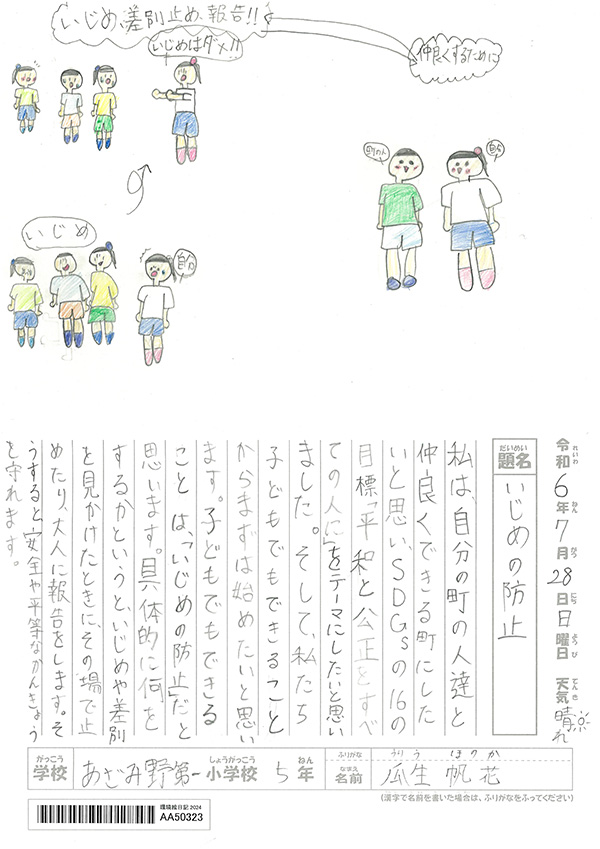 いじめ、差別止め、報告!!
いじめはダメ!!
仲良くするために
町の人
自分
いじめ
自分
令和6年7月28日日曜日 天気晴れ
れいわ ねん がつ にち ようび てんき
だいめい
題名
いじめの防止
私は、自分の町の人達と
仲良くできる町にした
いと思い、SDGsの16の
目標「平和と公正をすべ
ての人に」をテーマにしたいと思い
ました。そして、私たち
子どもでもできること
からまずは始めたいと思い
ます。子どもでもできる
ことは、「いじめの防止」だと
思います。具体的に何を
するかというと、いじめや差別
を見かけたときに、その場で止
めたり、大人に報告をします。そ
うすると、安全や平等なかんきょう
を守れます。
がっこう しょうがっこう ねん
学校 あざみ野第一小学校 5年
ふりがな うりう ほのか
なまえ
名前 瓜生 帆花
(漢字で名前を書いた場合は、ふりがなをふってください)
環境絵日記 2024
AA50323